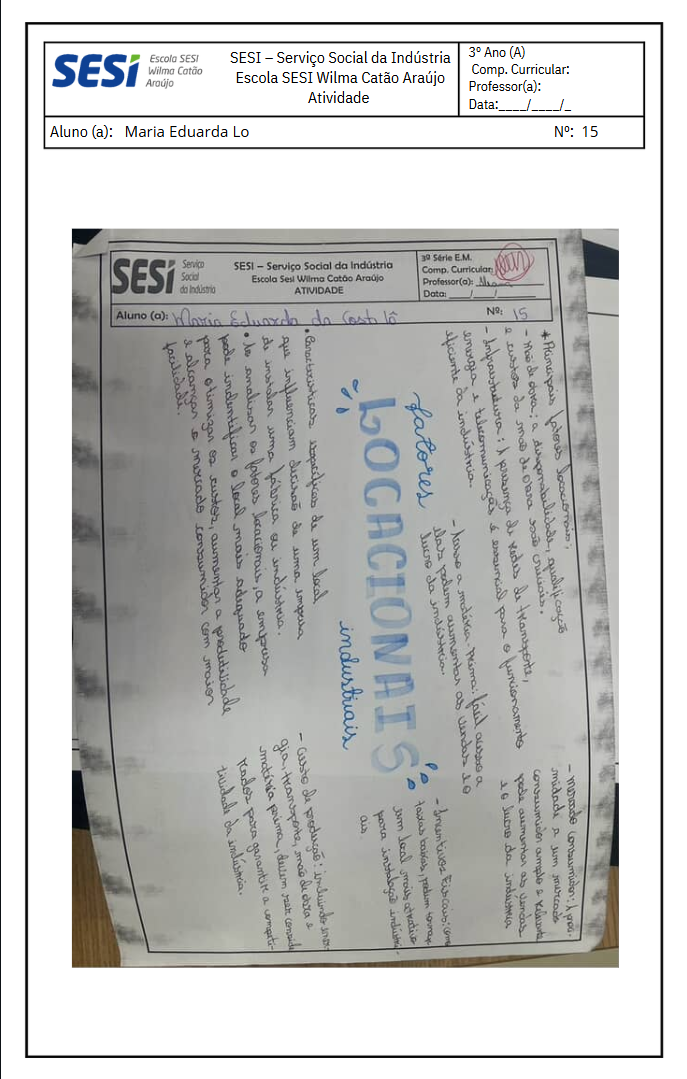 SESI
Escola SESI
Wilma Catão
Araújo
SESI – Serviço Social da Indústria
Escola SESI Wilma Catão Araújo
Atividade
3º Ano (A)
Comp. Curricular:
Professor(a):
Data:____/____/_
Aluno (a): Maria Eduarda Lo
Nº: 15
SESI
Serviço
Social
da Indústria
SESI – Serviço Social da Indústria
Escola Sesi Wilma Catão Araújo
ATIVIDADE
3ª Série E.M.
Comp. Curricular:
Professor(a):
Data: ____/____/________
Aluno (a): Maria Eduarda da Cost Lô
Nº: 15
* Principais fatores locacionais:
- Mão de obra: a disponibilidade, qualificação
e custos da mão de obra são cruciais.
- Infraestrutura: A presença de redes de transporte,
energia e telecomunicações é essencial para o funcionamento
eficiente da indústria.
- Acesso a matéria-prima: fácil acesso a
elas podem aumentar as vendas e o
lucro da indústria.
- Mercado consumidor: A proxi-
midade a um mercado
consumidor amplo e relevante
pode aumentar as vendas
e o lucro da indústria
fatores
LOCACIONAIS
industriais
- Incentivos fiscais: como
taxas baixas, podem tornar
um local mais atrativo
para instalação industri-
as.
• Características específicas de um local
que influenciam decisão de uma empresa
de instalar uma fábrica ou indústria.
• Ao analisar os fatores locacionais a empresa
pode indentificar o local mais adequado
para otimizar os custos, aumentar a produtilidade
e alcançar o mercado consumidor com maior
facilidade.
- Custo de produção: incluindo ener-
gia, transporte, mão de obra e
matéria prima, devem ser conside
rados para garantir a competi-
tividade da indústria.